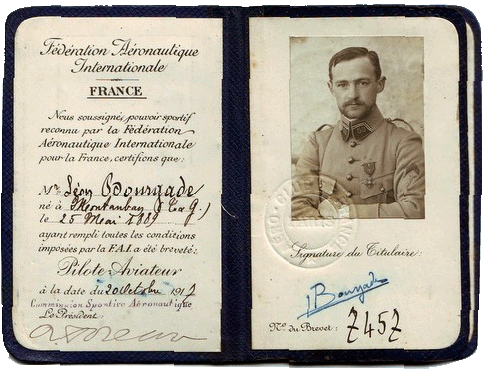 Fédération Aéronautique
Internationale
FRANCE
Nous soussignés, pouvoir sportif
reconnu par la Fédération
Aéronautique Internationale
pour la France, certifions que:
Mr Léon Bourjade
né à Montauban (T. & G.)
le 25 Mai 1889
ayant rempli toutes les conditions
imposées par la F.A.I. a été breveté:
Pilote-Aviateur
à la date du 20 Octobre 1917
Commission Sportive Aéronautique
Le Président:
Signature du Titulaire:
LBourjade
No du Brevet: 7457